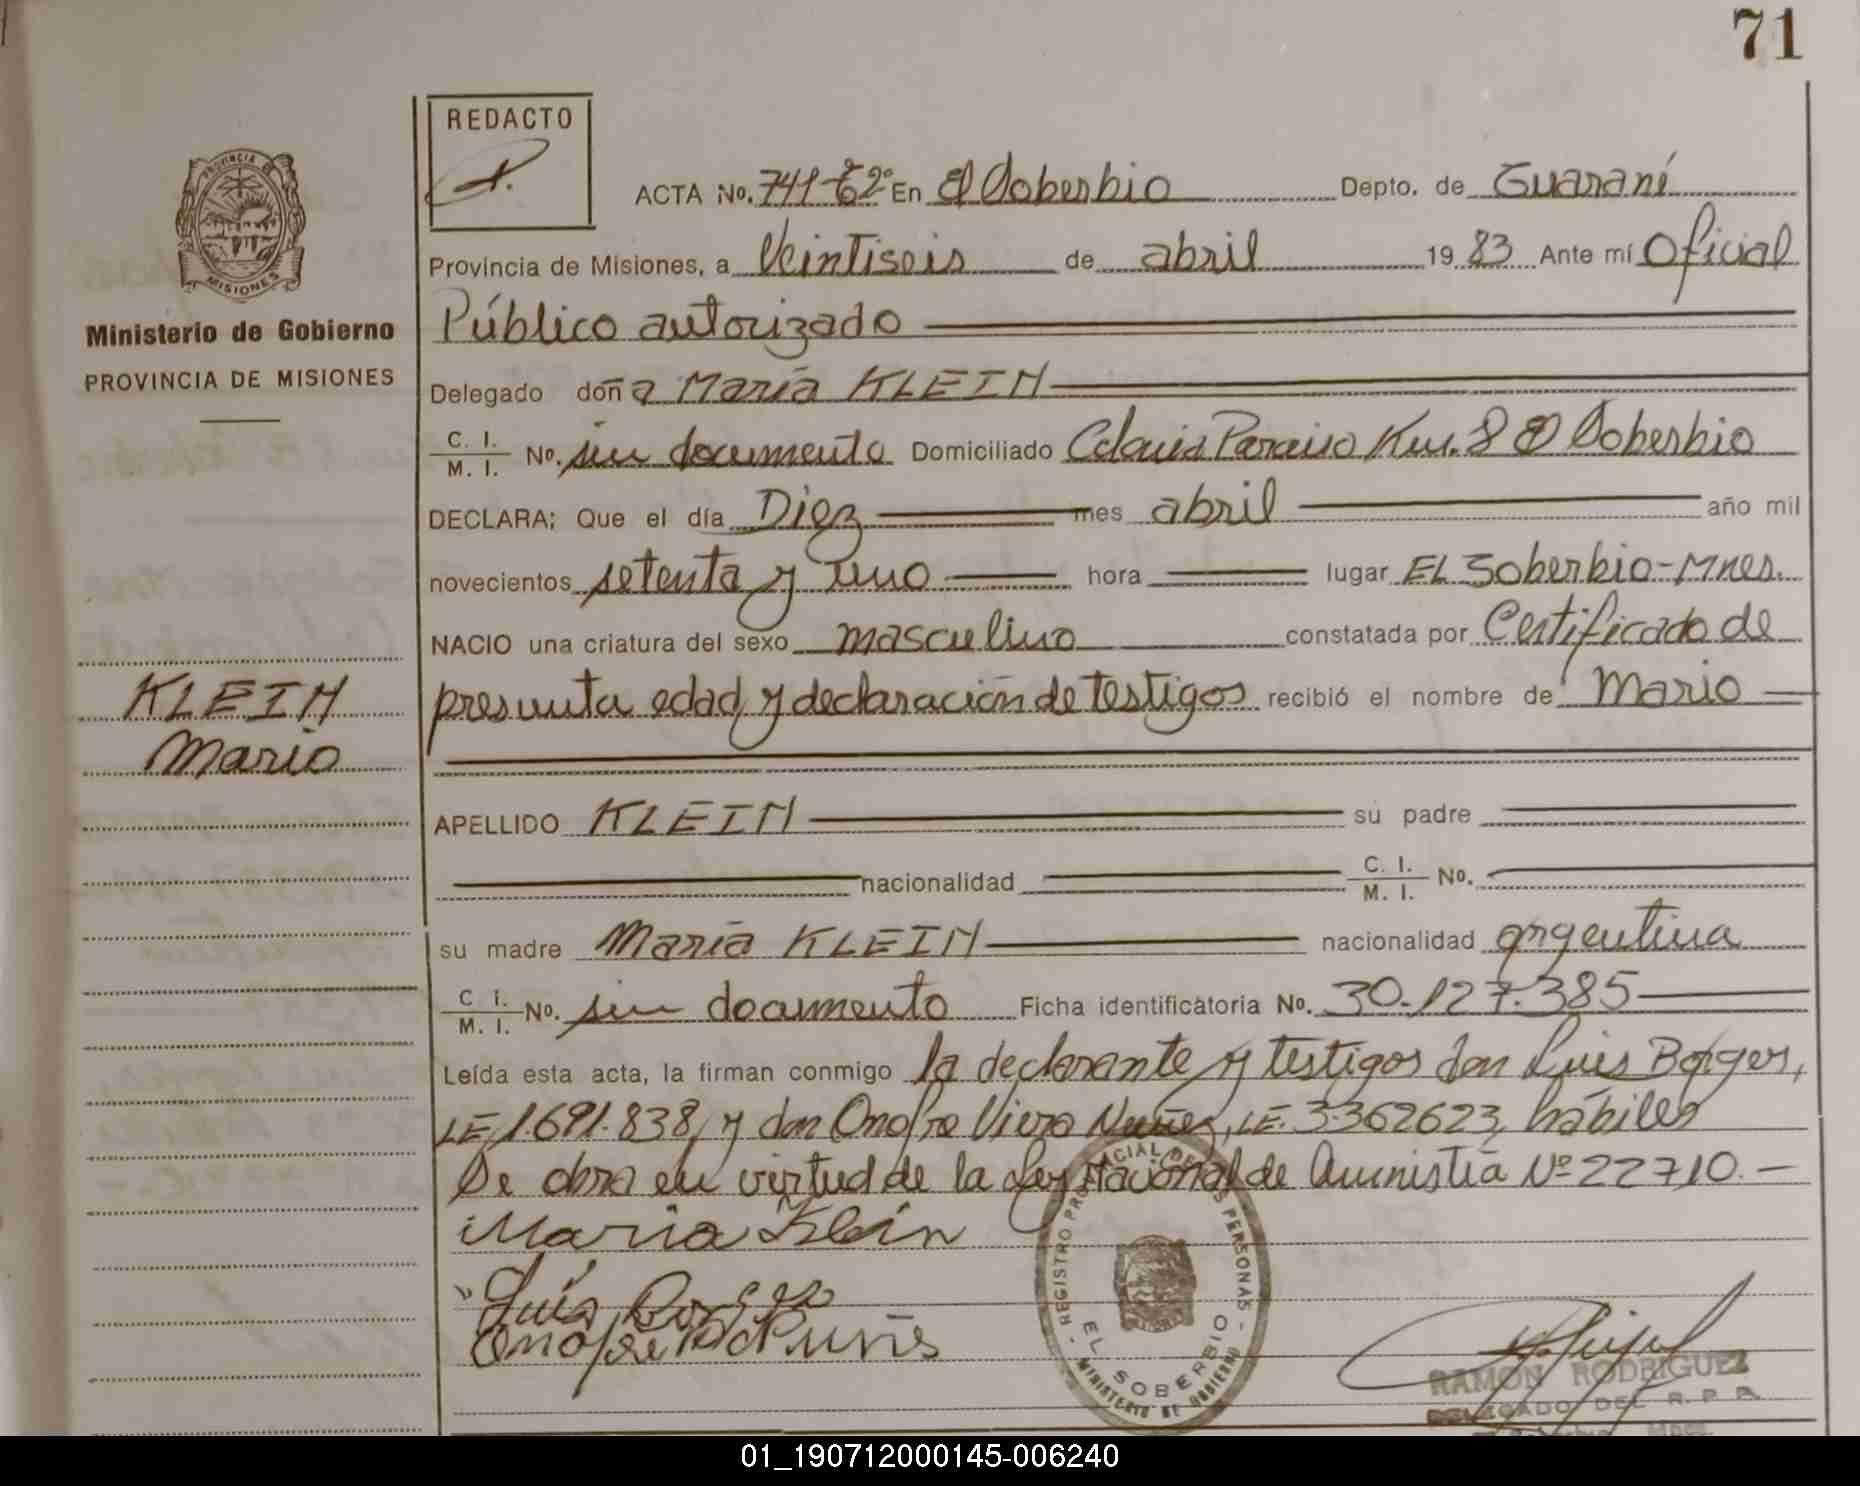 71
REDACTO
PROVINCIA DE
MISIONES
Ministerio de Gobierno
PROVINCIA DE MISIONES
ACTA No. 741-t2º En El Soberbio Depto. de Guaraní
Provincia de Misiones, a Veintiseis de abril 1983 Ante mí Oficial
Público autorizado
Delegado doña María KLEIN
C. I. / M. I. No. sin documento Domiciliado Colonia Paraiso Km. 8 El Soberbio
DECLARA; Que el día Diez mes abril año mil
novecientos setenta y uno hora lugar EL Soberbio-Mnes.
NACIO una criatura del sexo masculino constatada por Certificado de
presunta edad y declaración de testigos recibió el nombre de Mario
KLEIN
Mario
APELLIDO KLEIN su padre
nacionalidad C. I. / M. I. No.
su madre María KLEIN nacionalidad argentina
C. I. / M. I. No. sin documento Ficha identificatoria No. 30.127.385
Leída esta acta, la firman conmigo la declarante y testigos don Luis Borges,
LE 1.691.838, y don Onofre Viera Nuñez, LE. 3.362623, hábiles
Se obra en virtud de la Ley Nacional de Amnistía Nº 22710.-
María Klein
Luís Borges
Onofre Nunes
REGISTRO PROVINCIAL DE LAS PERSONAS
EL SOBERBIO
MINISTERIO DE GOBIERNO
RAMON RODRIGUEZ
DELEGADO DEL R. P. P.
01_190712000145-006240